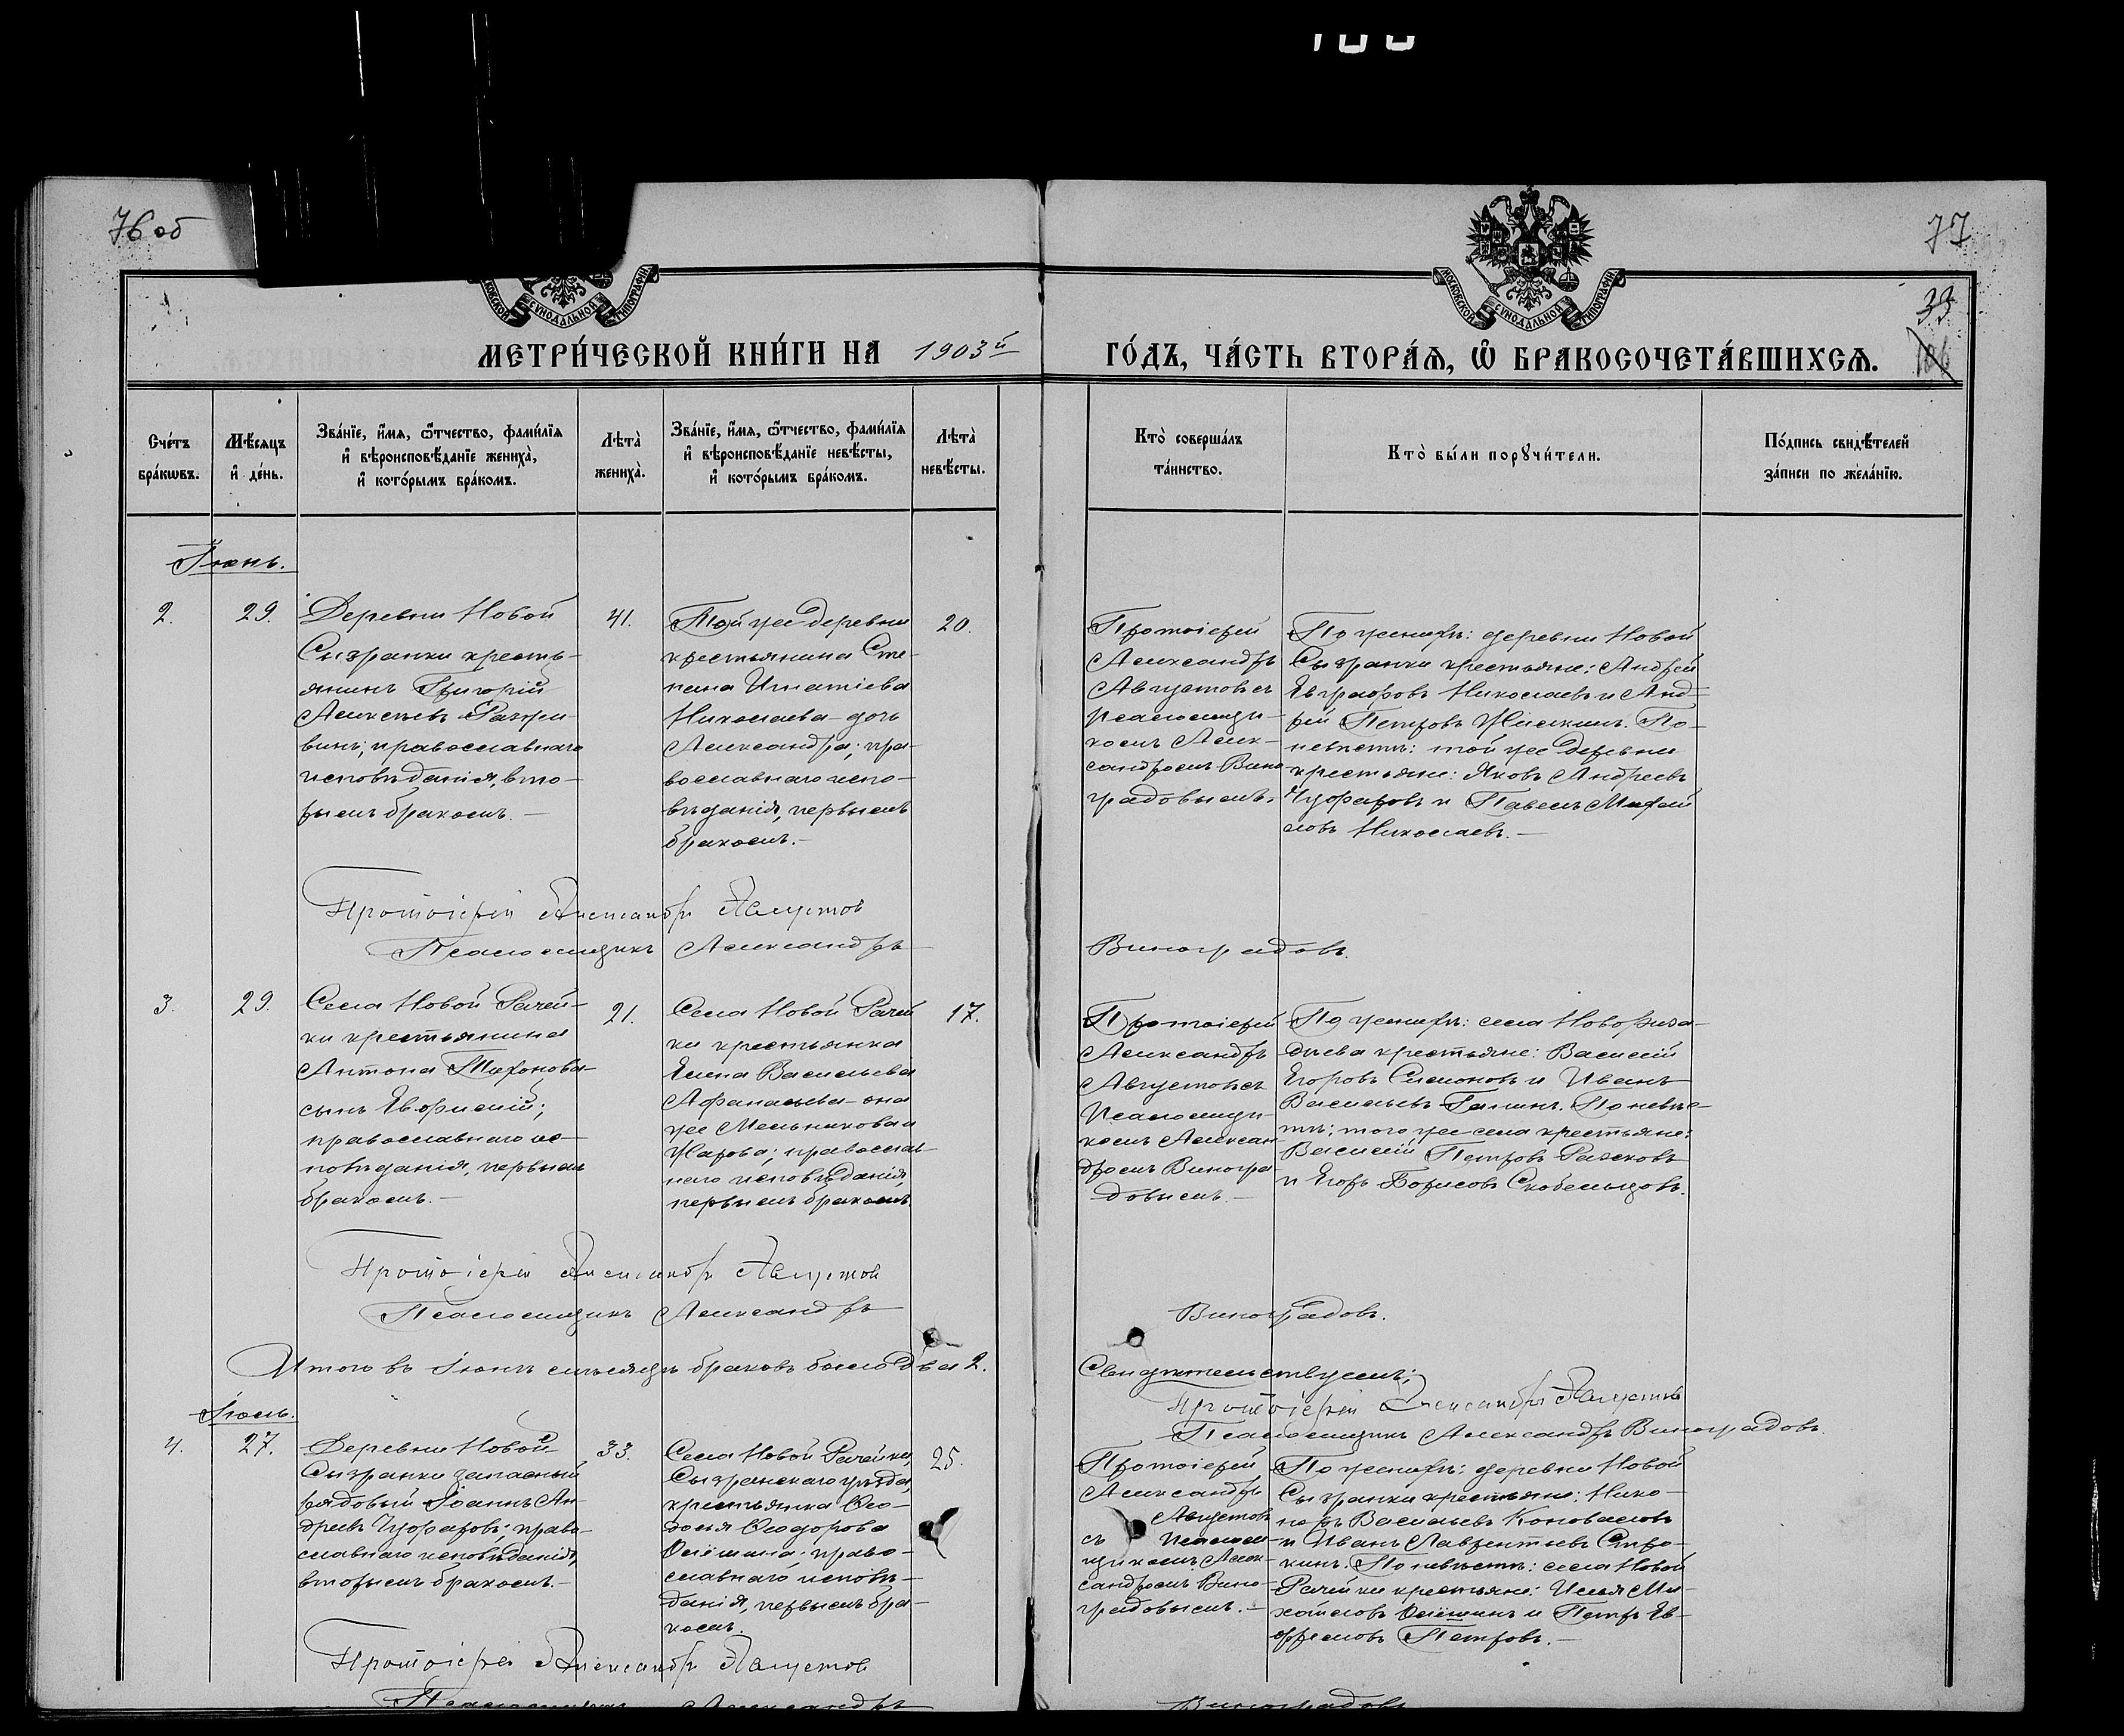 76 об
77
33
МЕТРИ́ЧЕСКОЙ КНИ́ГИ НА 1903й
ГО́ДЪ, ЧА́СТЬ ВТОРА́Ѧ, Ѡ҆ БРАКОСОЧЕТА́ВШИХСѦ.
Сче́тъ бра́кѡвъ.
Мѣ́сяцъ и҆ де́нь.
Зва́нїе, и҆́мѧ, ѻ҆́тчество, фами́лїѧ
и҆ вѣроисповѣ́данїе жениха̀,
и҆ кото́рымъ бра́комъ.
Лѣта̀ жениха̀.
Зва́нїе, и҆́мѧ, ѻ҆́тчество, фами́лїѧ
и҆ вѣроисповѣ́данїе невѣ́сты,
и҆ кото́рымъ бра́комъ.
Лѣта̀ невѣ́сты.
Кто̀ соверша́лъ
та́инство.
Кто̀ бы́ли порꙋчи́тели.
По́дпись свидѣ́телей
за́писи по жела́нїю.
Іюнь.
2.
29.
Деревни Новой
Сызранки кресть-
янинъ Григорій
Алексѣевъ
винъ; православнаго
исповѣданія, вто-
рымъ бракомъ.—
41.
Той же деревни
крестьянина Сте-
пана Игнатіева
Николаева-дочь
Александра; пра-
вославнаго испо-
вѣданія, первымъ
бракомъ.—
20.
Протоіерей
Александръ
Августовъ съ
псаломщи-
комъ Алек-
сандромъ Вино
градовымъ.
По женихѣ: деревни Новой
Сызранки крестьяне: Андрей
Евграфовъ Николаевъ и Анд-
рей Петровъ Жилкинъ. По-
невѣстѣ: той же деревни
крестьяне: Яковъ Андреевъ
Чуфаровъ и Павелъ Михай
ловъ Николаевъ.—
Протоіерей Александръ Августовъ
Псаломщикъ Александръ Виноградовъ.
3.
29.
Села Новой Рачей-
ки крестьянина
Антона Тихонова-
сынъ Евфимій;
православнаго ис-
повѣданія, первымъ
бракомъ.—
21.
Села Новой Рачей
ки крестьянка
Елена Васильева
Афанасьева-она
же Мельникова и
Жарова; православ-
наго исповѣданія,
первымъ бракомъ.
17.
Протоіерей
Александръ
Августовъ съ
псаломщи-
комъ Алексан
дромъ Виногра-
довымъ.—
По женихѣ: села Новорача-
крестьяне: Василій
Егоровъ Симоновъ и Иванъ
Васильевъ Галинъ. По невѣс-
тѣ: того же села крестьяне:
Василій Петровъ
и Егоръ Борисовъ Скобельцовъ.
Протоіерей Александръ Августовъ
Псаломщикъ Александръ Виноградовъ.
Итого въ Іюнѣ мѣсяцѣ браковъ было два 2.
Свидѣтельствуемъ:
Протоіерей Александръ Августовъ
Псаломщикъ Александръ Виноградовъ.
Іюль.
4.
27.
Деревни Новой
Сызранки запасный
рядовый Іоаннъ Ан-
дреевъ Чуфаровъ; право-
славнаго исповѣданія,
вторымъ бракомъ.—
33.
Села Новой Рачейки,
Сызранскаго уѣзда,
крестьянка Ѳео-
досія Ѳеодорова
православ-
славнаго исповѣ-
данія, первымъ бра-
комъ.
25.
Протоіерей
Александръ
Августовъ
съ псалом-
щикомъ Алек-
сандромъ Вино-
градовымъ.—
По женихѣ: деревни Новой
Сызранки крестьяне: Нико-
Васильевъ Коноваловъ
и Иванъ Лаврентьевъ
По невѣстѣ: села Новой
Рачейки крестьяне: Илья Ми-
хайловъ и Петръ Ев-
фремовъ Петровъ.—
Протоіерей Александръ Августовъ
Псаломщикъ Александръ Виноградовъ